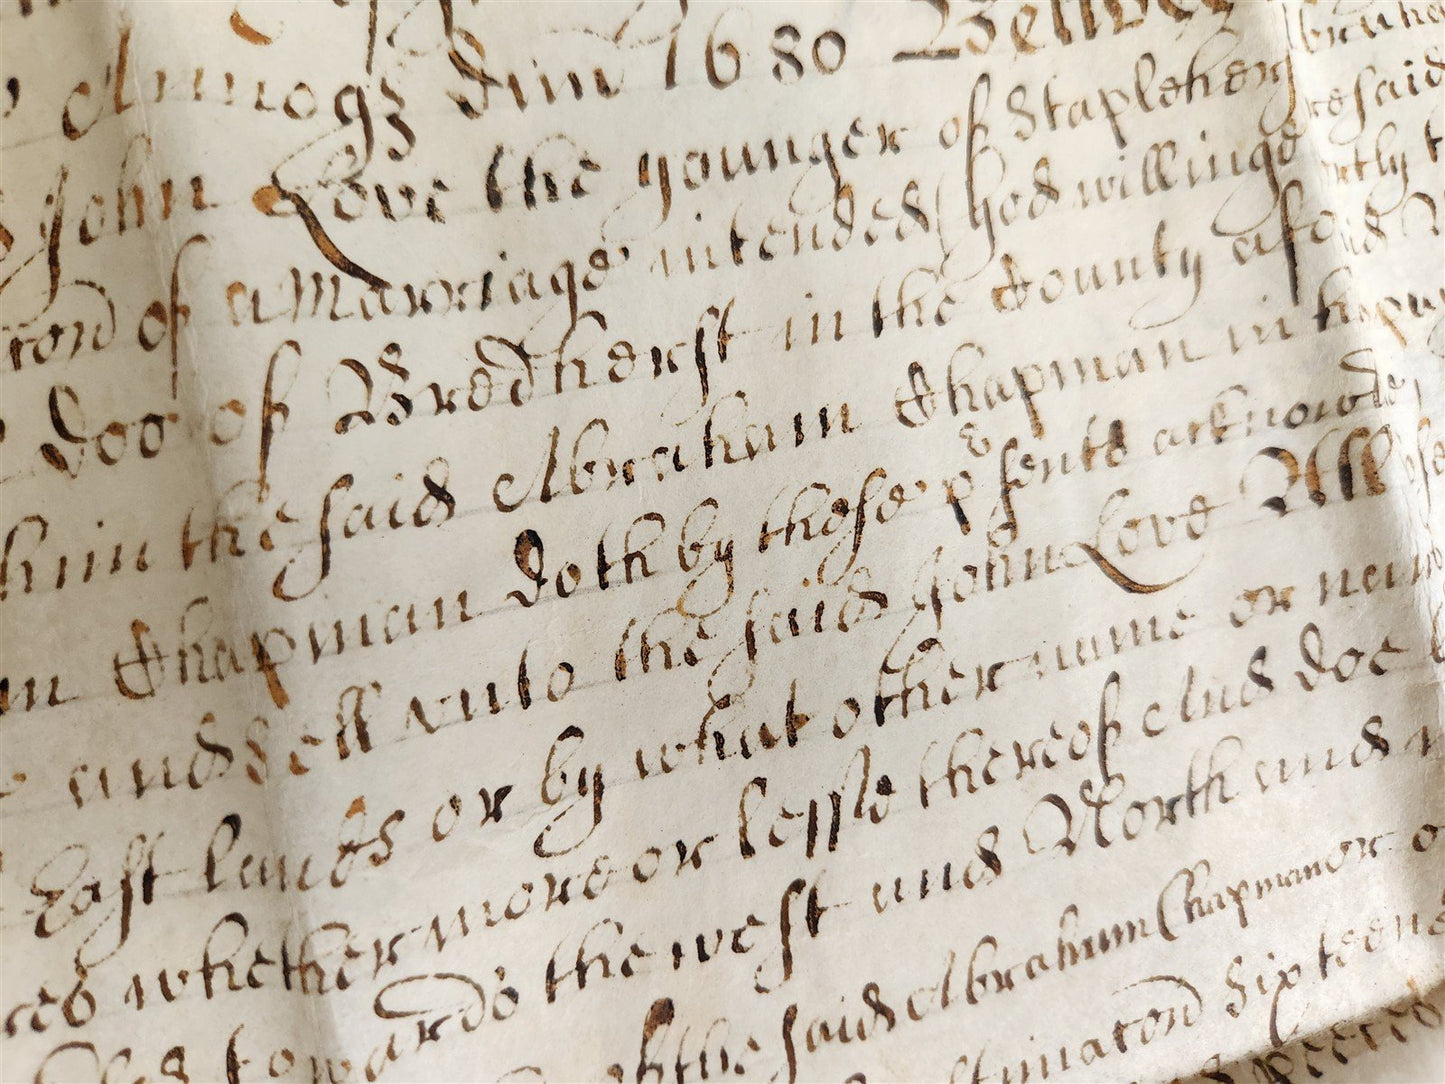 Annoqz Dm 1680 Betwee
John Love the younger of Stapleherst
of a Marriage intended (God willinge
doo of Bredherst in the County afosaid
him the said Abraham Chapman in
Chapman doth by these psents acknowledg
and sell vnto the said John Love All
East lands or by what other name or
whether more or lesse thereof And doe
towards the west and North and
the said Abraham Chapman or
Sixteene